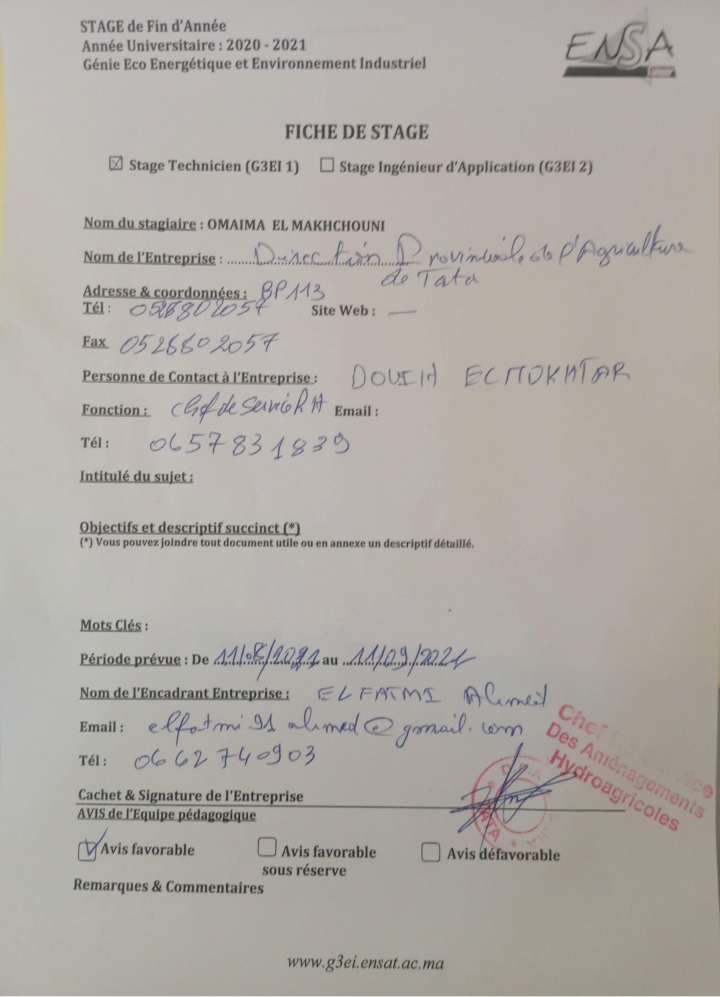 STAGE de Fin d'Année
Année Universitaire : 2020 - 2021
Génie Eco Energétique et Environnement Industriel
ENSA
FICHE DE STAGE
☒ Stage Technicien (G3EI 1) ☐ Stage Ingénieur d'Application (G3EI 2)
Nom du stagiaire : OMAIMA EL MAKHCHOUNI
Nom de l'Entreprise : Direction Provinciale de l'Agriculture
de Tata
Adresse & coordonnées : BP 113
Tél : 0528802057 Site Web : —
Fax 0528802057
Personne de Contact à l'Entreprise : ELMOKHTAR
Fonction : chef de service RH Email :
Tél : 0657831839
Intitulé du sujet :
Objectifs et descriptif succinct (*)
(*) Vous pouvez joindre tout document utile ou en annexe un descriptif détaillé.
Mots Clés :
Période prévue : De 11/08/2021 au 11/09/2021
Nom de l'Encadrant Entreprise : ELFATMI Ahmed
Email : elfatmi91ahmed@gmail.com
Tél : 0662740903
Chef Service
Des Aménagements
Hydroagricoles
Cachet & Signature de l'Entreprise
AVIS de l'Equipe pédagogique
☑ Avis favorable ☐ Avis favorable ☐ Avis défavorable
sous réserve
Remarques & Commentaires
www.g3ei.ensat.ac.ma